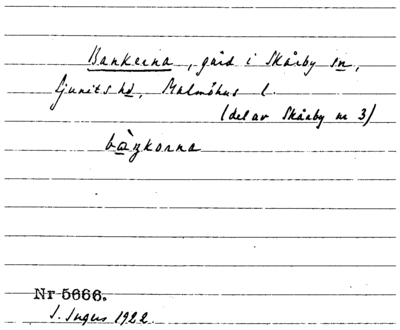 Bankerna, gård i Skårby sn,
Ljunits hd, Malmöhus l.
(del av Skårby nr 3)
bàŋkorna
Nr 5666.
I. Ingers 1922.